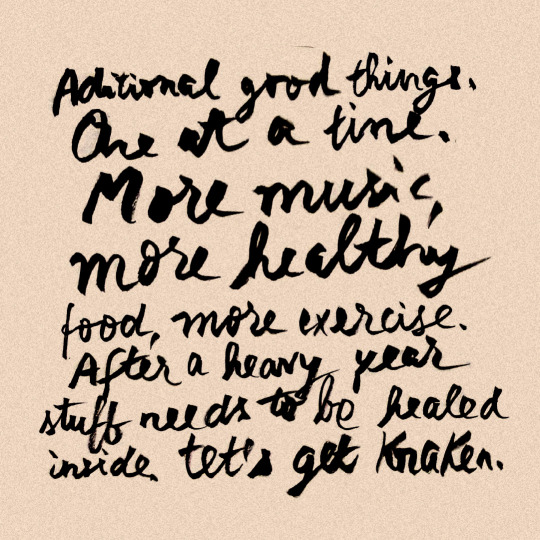 Aditional good things.
One at a time.
More music,
more healthy
food, more exercise.
After a heavy year
stuff needs to be healed
inside. Let's get Kraken.